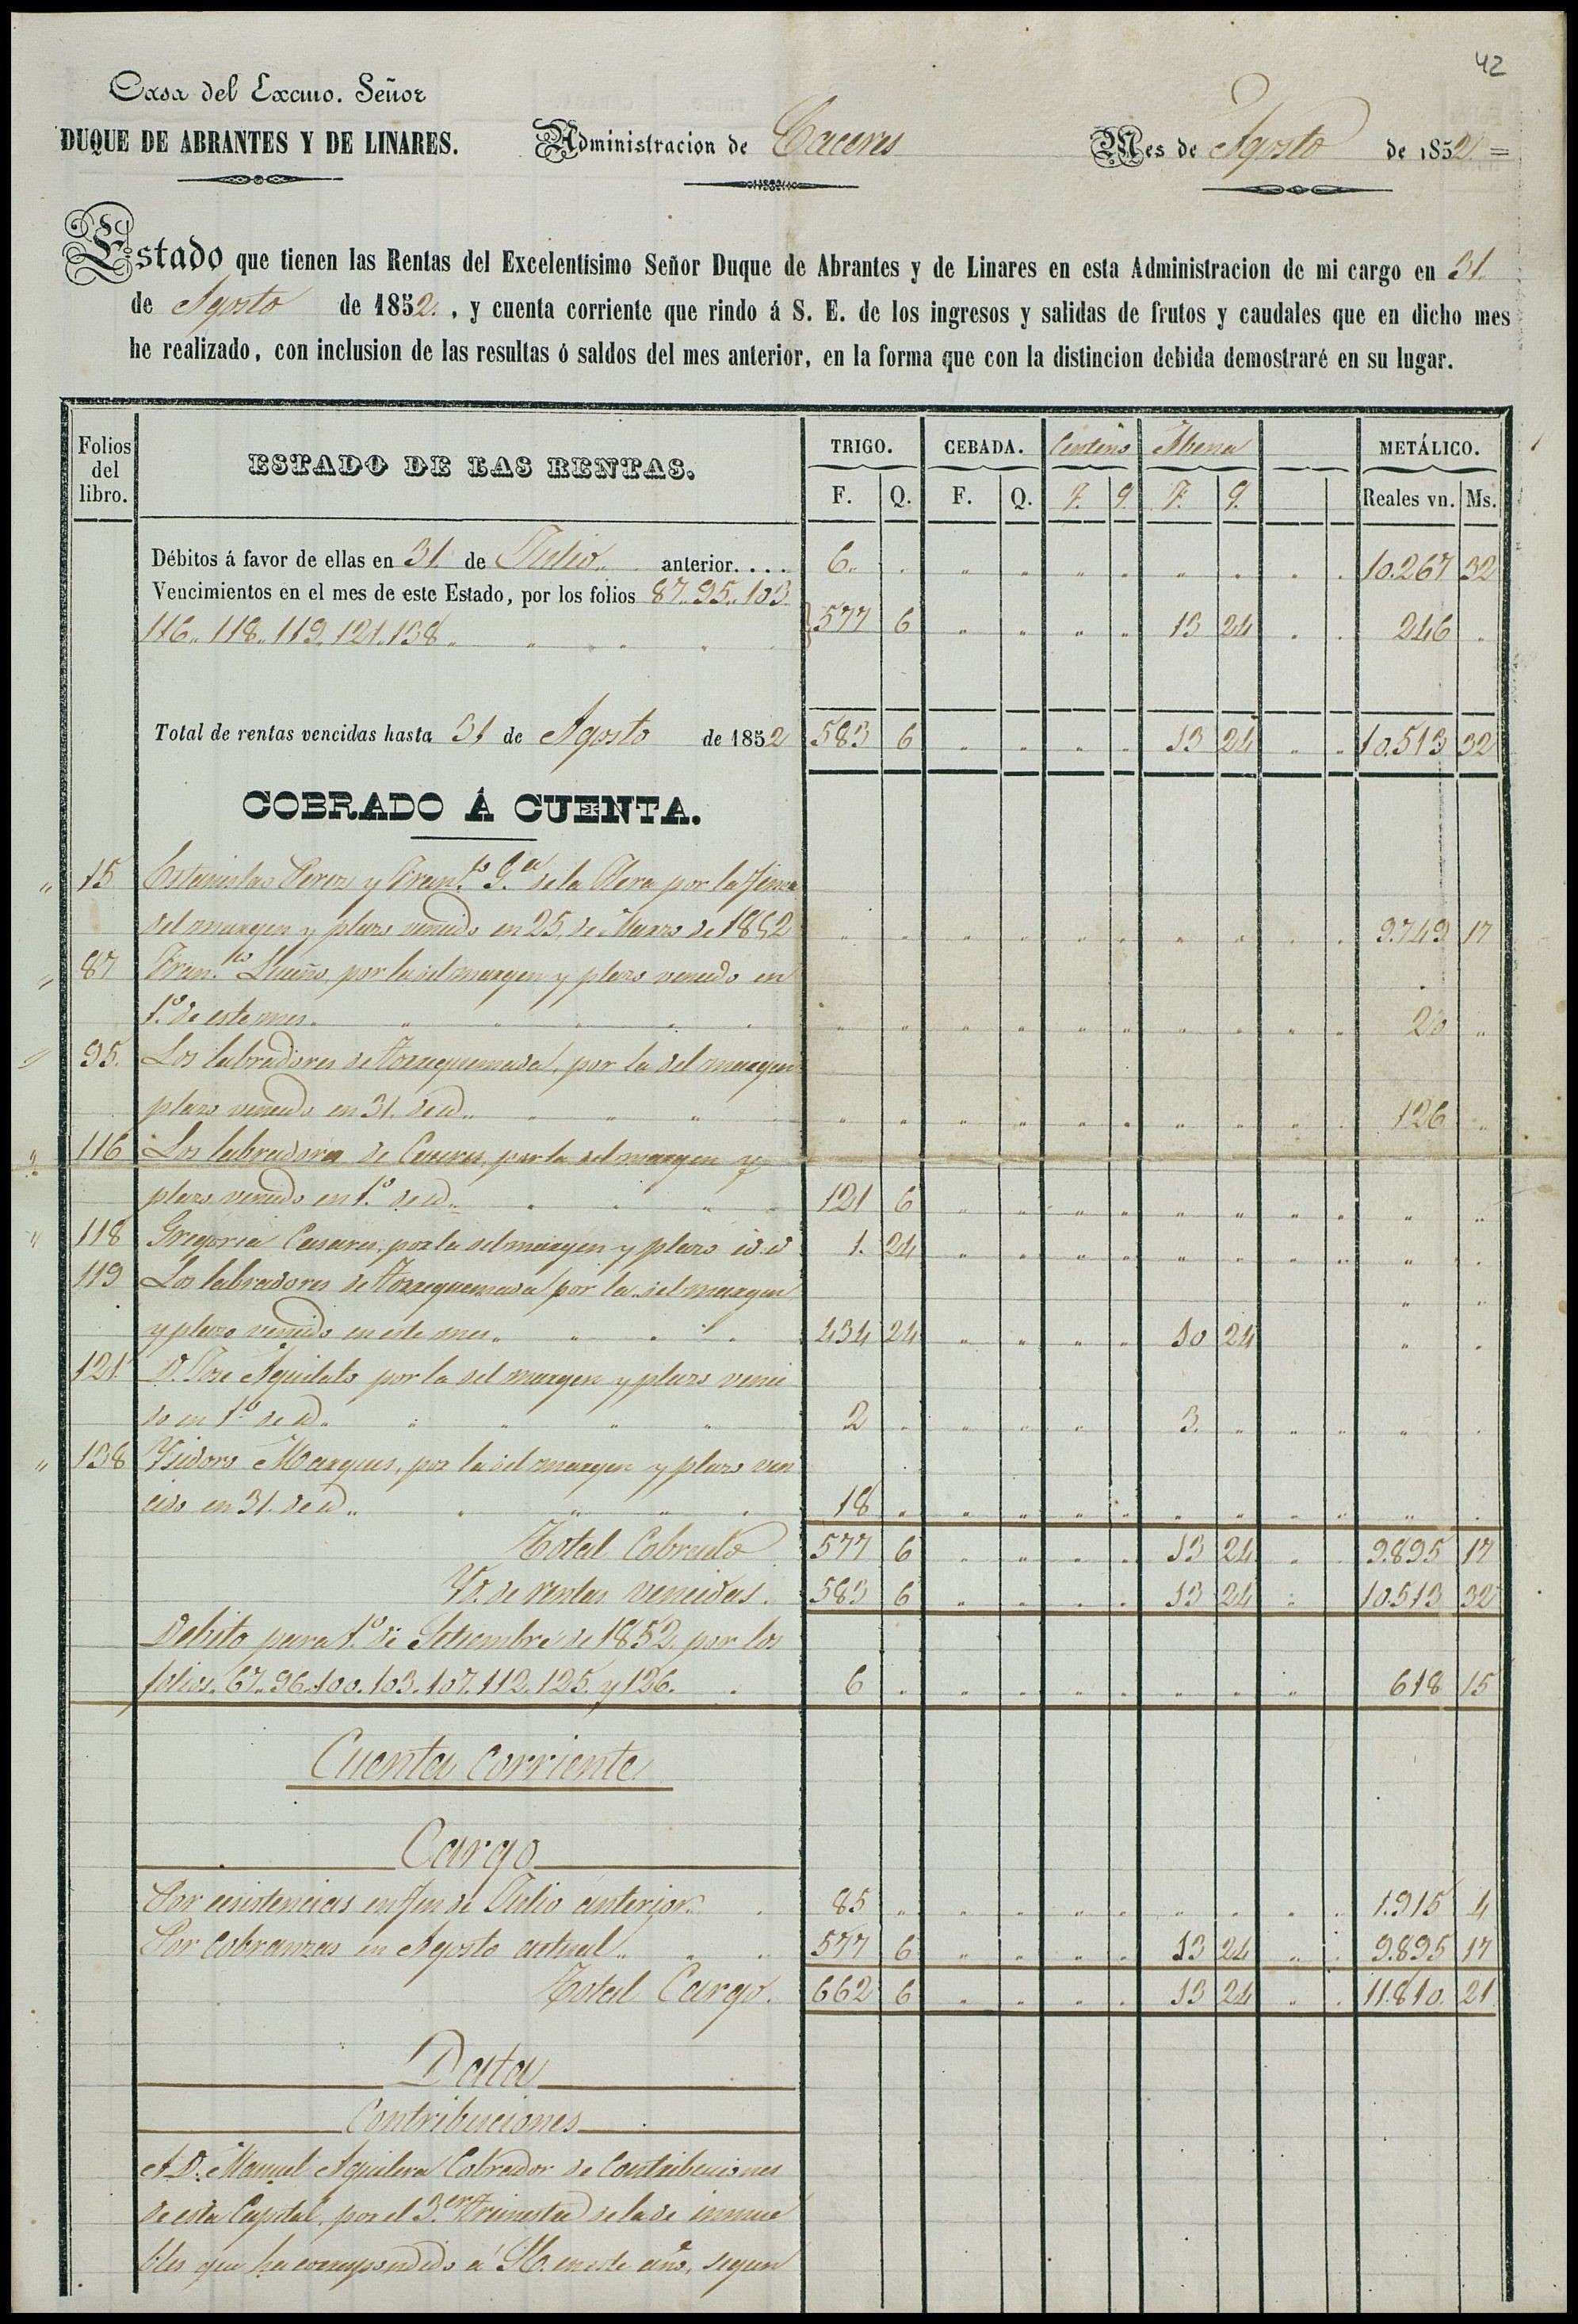 42
Casa del Excmo. Señor
DUQUE DE ABRANTES Y DE LINARES.
Administracion de Caceres
Mes de Agosto de 1852 =
Estado que tienen las Rentas del Excelentísimo Señor Duque de Abrantes y de Linares en esta Administracion de mi cargo en 31.
de Agosto de 1852. , y cuenta corriente que rindo á S. E. de los ingresos y salidas de frutos y caudales que en dicho mes
he realizado, con inclusion de las resultas ó saldos del mes anterior, en la forma que con la distincion debida demostraré en su lugar.
Folios del libro. ESTADO DE LAS RENTAS. TRIGO. CEBADA. Centeno Abena METÁLICO.
F. Q. F. Q. F. Q. F. Q. Reales vn. Ms.
Débitos á favor de ellas en 31. de Julio anterior.... 6 10.267 32
Vencimientos en el mes de este Estado, por los folios 87. 95. 103
116. 118. 119. 121. 138 577 6 13 24 246
Total de rentas vencidas hasta 31 de Agosto de 1852 583 6 13 24 10.513 32
COBRADO Á CUENTA.
15 Estanislao Perez y Fran.co G.a de la Olera por la finca
del margen y plazo vencido en 25. de Marzo de 1852 9.749 17
87 Fran.co por la del margen y plazo vencido en
1.º de este mes. 20
95. Los labradores de Torrequemada, por la del margen
plazo vencido en 31. de id. 126
116 Los labradores de Caceres, por la del margen y
plazo vencido en 1.º de id. 121 6
118 Gregoria Casares, por la del margen y plazo id. id 1. 24
119 Los labradores de Torrequemada por la del margen
y plazo vencido en este mes. 434 24 10 24
121. D. Jose por la del margen y plazo venci
do en 1.º de id. 2 3.
138 Ysidoro Marques, por la del margen y plazo ven
cido en 31. de id. 18
Total Cobrado 577 6 13 24 9.895 17
Yd. de rentas vencidas. 583 6 13 24 10.513 32
Debito para 1.º de Setiembre de 1852. por los
folios. 67. 96. 100. 103. 107. 112. 125. y 126. 6 618 15
Cuenta corriente
Cargo
Por ecsistencias en fin de Julio anterior. 85 1.915 4
Por cobranzas en Agosto actual. 577 6 13 24 9.895 17
Total Cargo. 662 6 13 24 11.810. 21
Data
Contribuciones
A D. Manuel Aguilera Cobrador de Contribuciones
de esta Capital, por el 3.er trimestre de la de inmue
bles que ha correspondido á S.E. en este año, segun